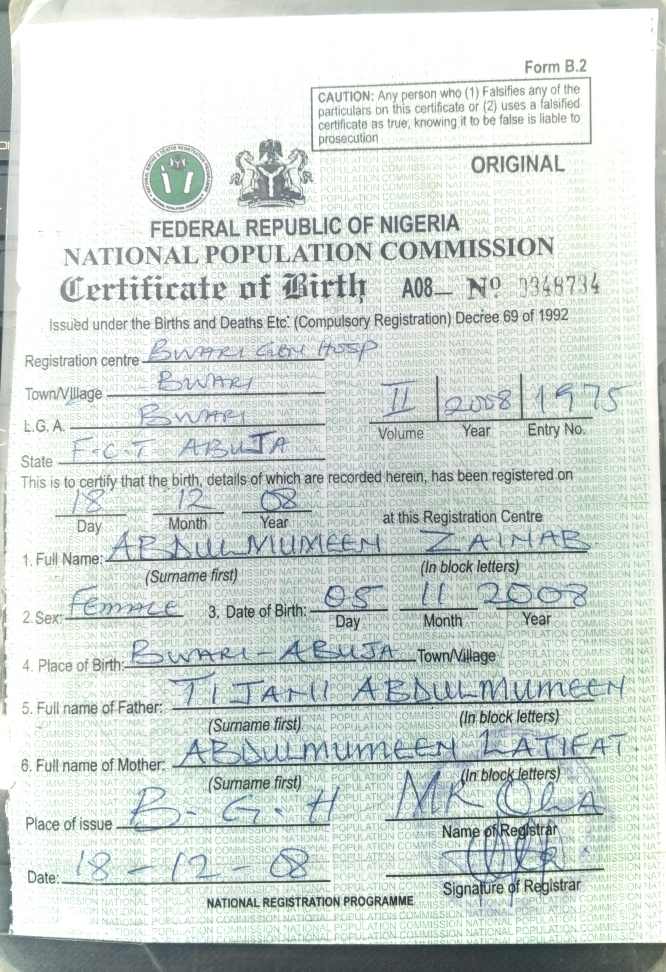 Form B.2
CAUTION: Any person who (1) Falsifies any of the
particulars on this certificate or (2) uses a falsified
certificate as true, knowing it to be false is liable to
prosecution
ORIGINAL
FEDERAL REPUBLIC OF NIGERIA
NATIONAL POPULATION COMMISSION
Certificate of Birth A08— Nº 0348734
Issued under the Births and Deaths Etc. (Compulsory Registration) Decree 69 of 1992
Registration centre BWARI GEN HOSP
Town/Village BWARI
L.G.A. BWARI
II 2008 1975
Volume Year Entry No.
State F.C.T ABUJA
This is to certify that the birth, details of which are recorded herein, has been registered on
18 12 08
Day Month Year at this Registration Centre
1. Full Name: ABDULMUMEEN ZAINAB
(Surname first) (In block letters)
2. Sex: FEMALE 3. Date of Birth: 05 11 2008
Day Month Year
4. Place of Birth: BWARI-ABUJA Town/Village
5. Full name of Father: TIJANI ABDULMUMEEN
(Surname first) (In block letters)
6. Full name of Mother: ABDULMUMEEN LATIFAT.
(Surname first) (In block letters)
Place of issue B.G.H MR
Name of Registrar
Date: 18-12-08
Signature of Registrar
NATIONAL REGISTRATION PROGRAMME